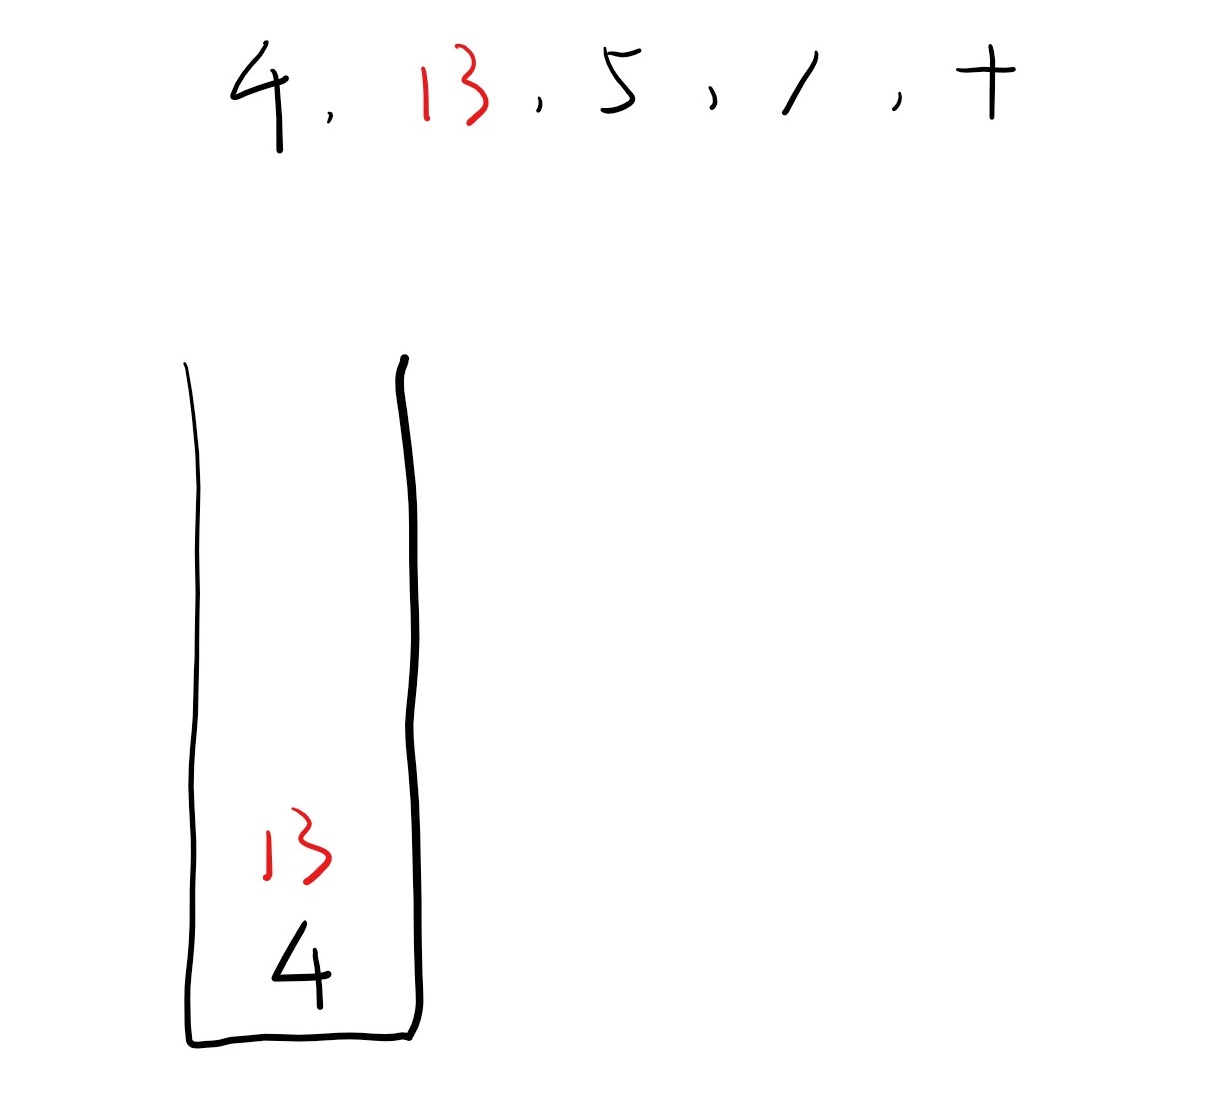 4, 13, 5, /, +
13
4